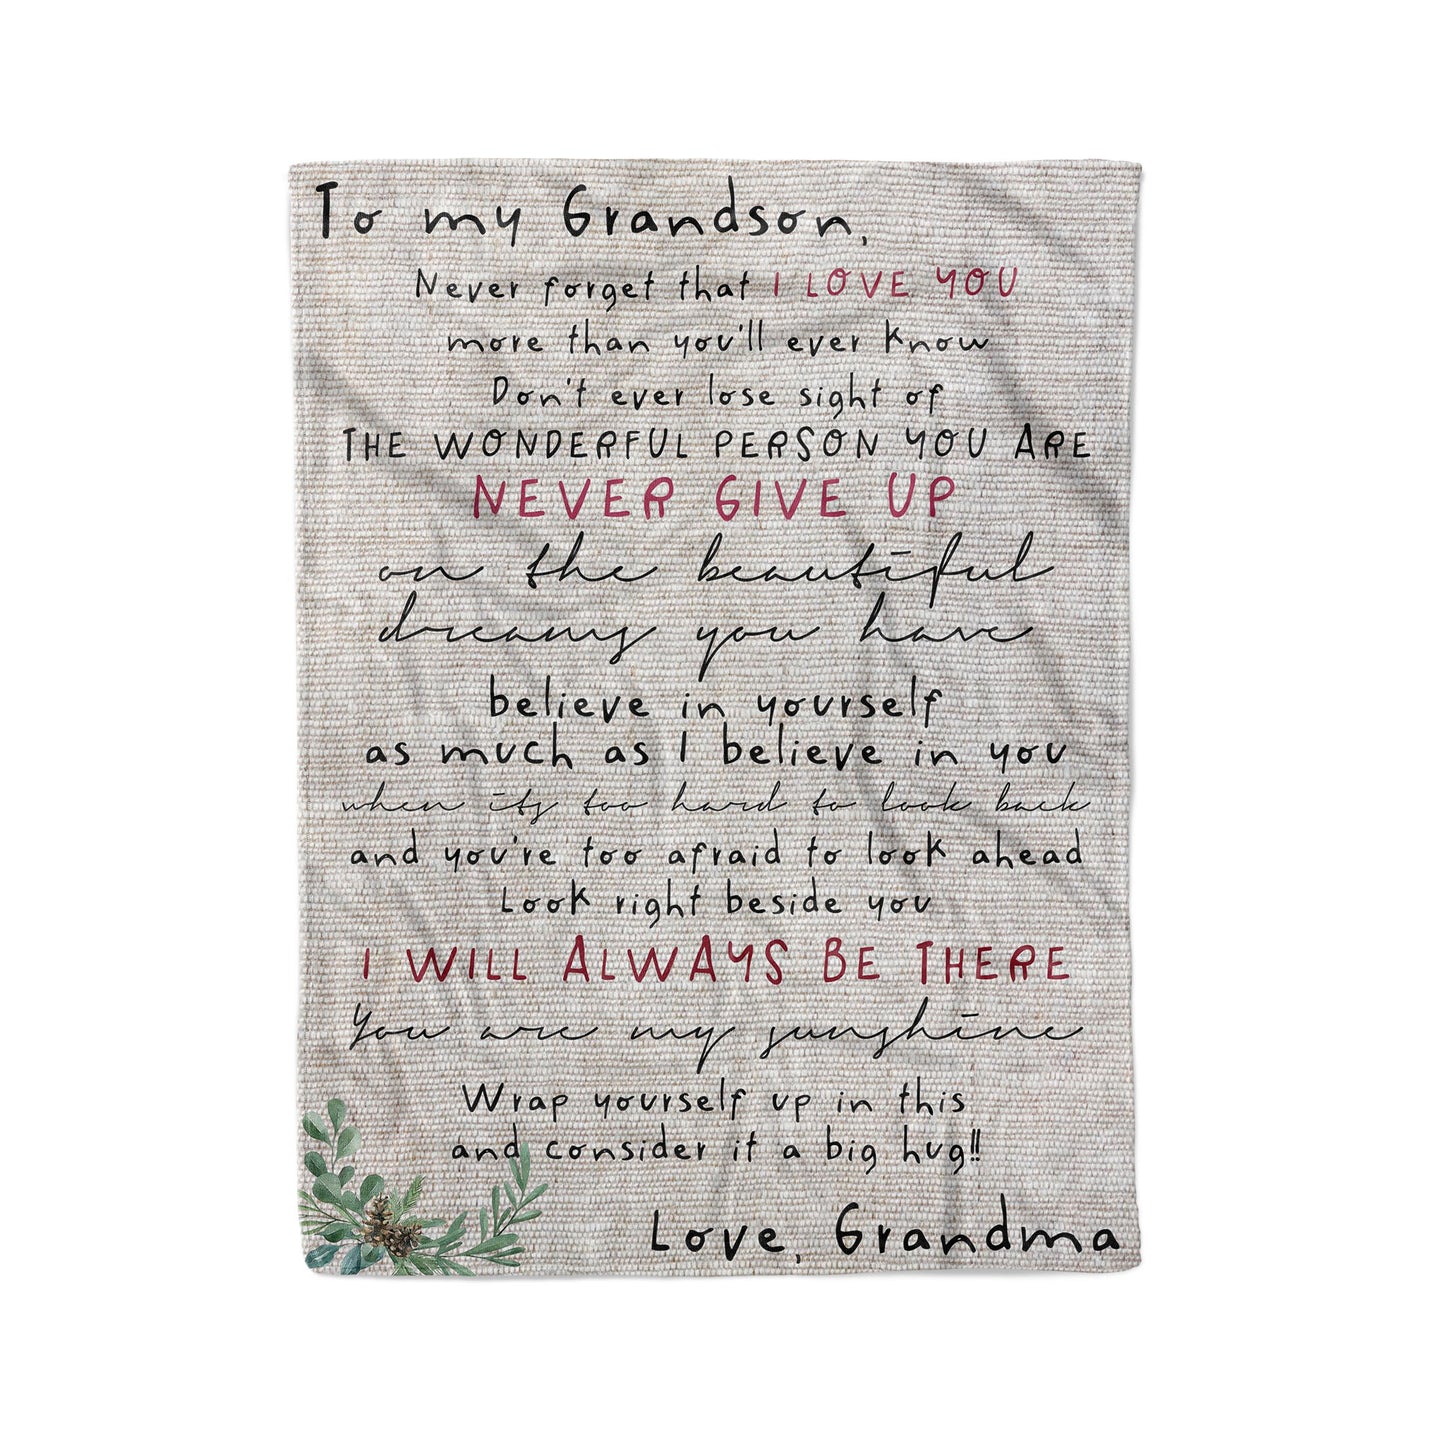 To my Grandson,
Never forget that I LOVE YOU
more than you'll ever know
Don't ever lose sight of
THE WONDERFUL PERSON YOU ARE
NEVER GIVE UP
on the beautiful
dreams you have
believe in yourself
as much as I believe in you
when its too hard to look back
and you're too afraid to look ahead
Look right beside you
I WILL ALWAYS BE THERE
You are my sunshine
Wrap yourself up in this
and consider it a big hug!!
Love, Grandma